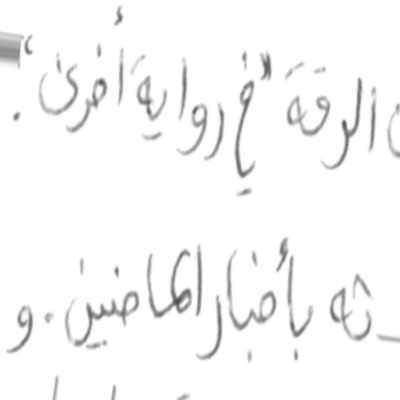 الرقة "في رواية أخرى".
ـثه بأخبار الماضين. و